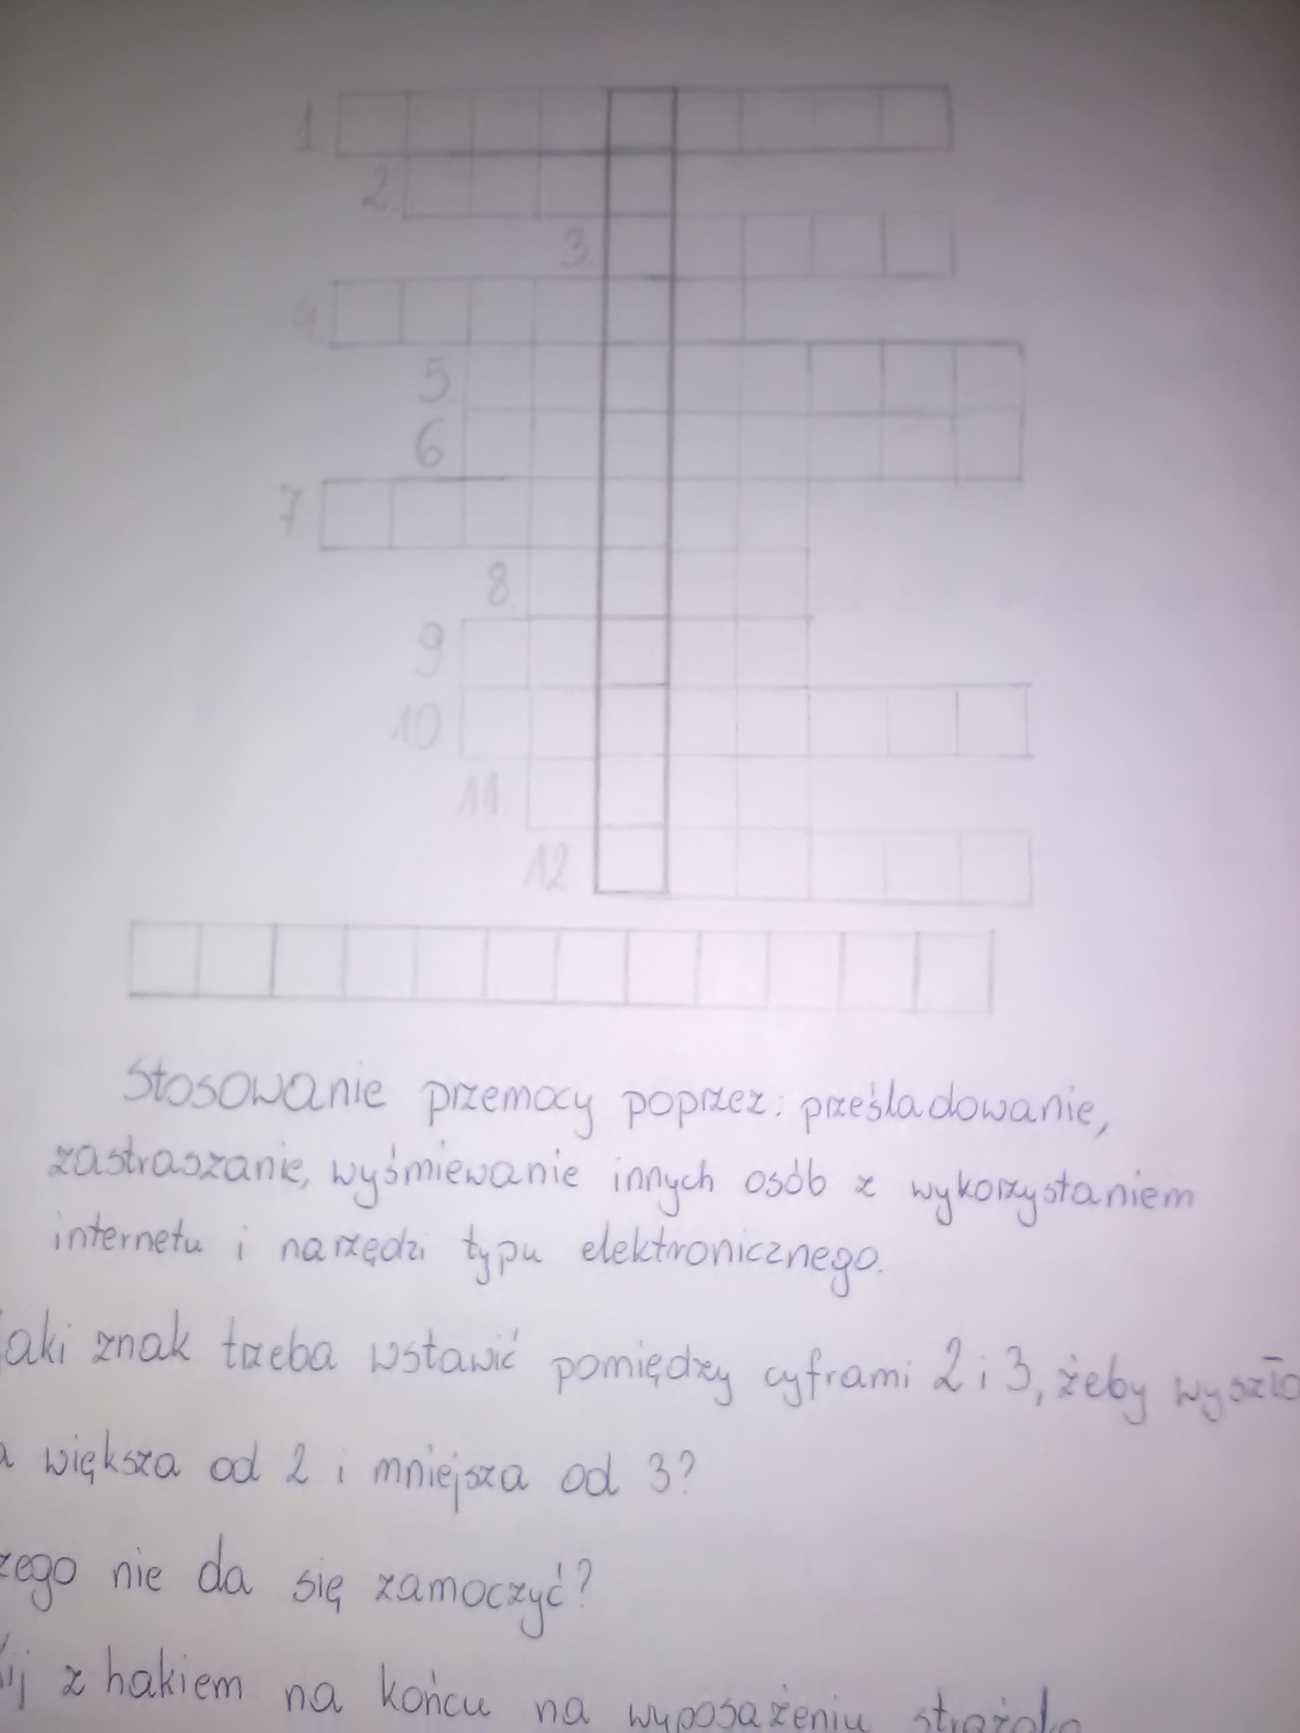 1
2.
3.
4
5
6
7
8
9
10
11
12
Stosowanie przemocy poprzez: prześladowanie,
zastraszanie, wyśmiewanie innych osób z wykorzystaniem
internetu i narzędzi typu elektronicznego.
Jaki znak trzeba wstawić pomiędzy cyframi 2 i 3, żeby wyszło
większa od 2 i mniejsza od 3?
zego nie da się zamoczyć?
z hakiem na końcu na wyposażeniu